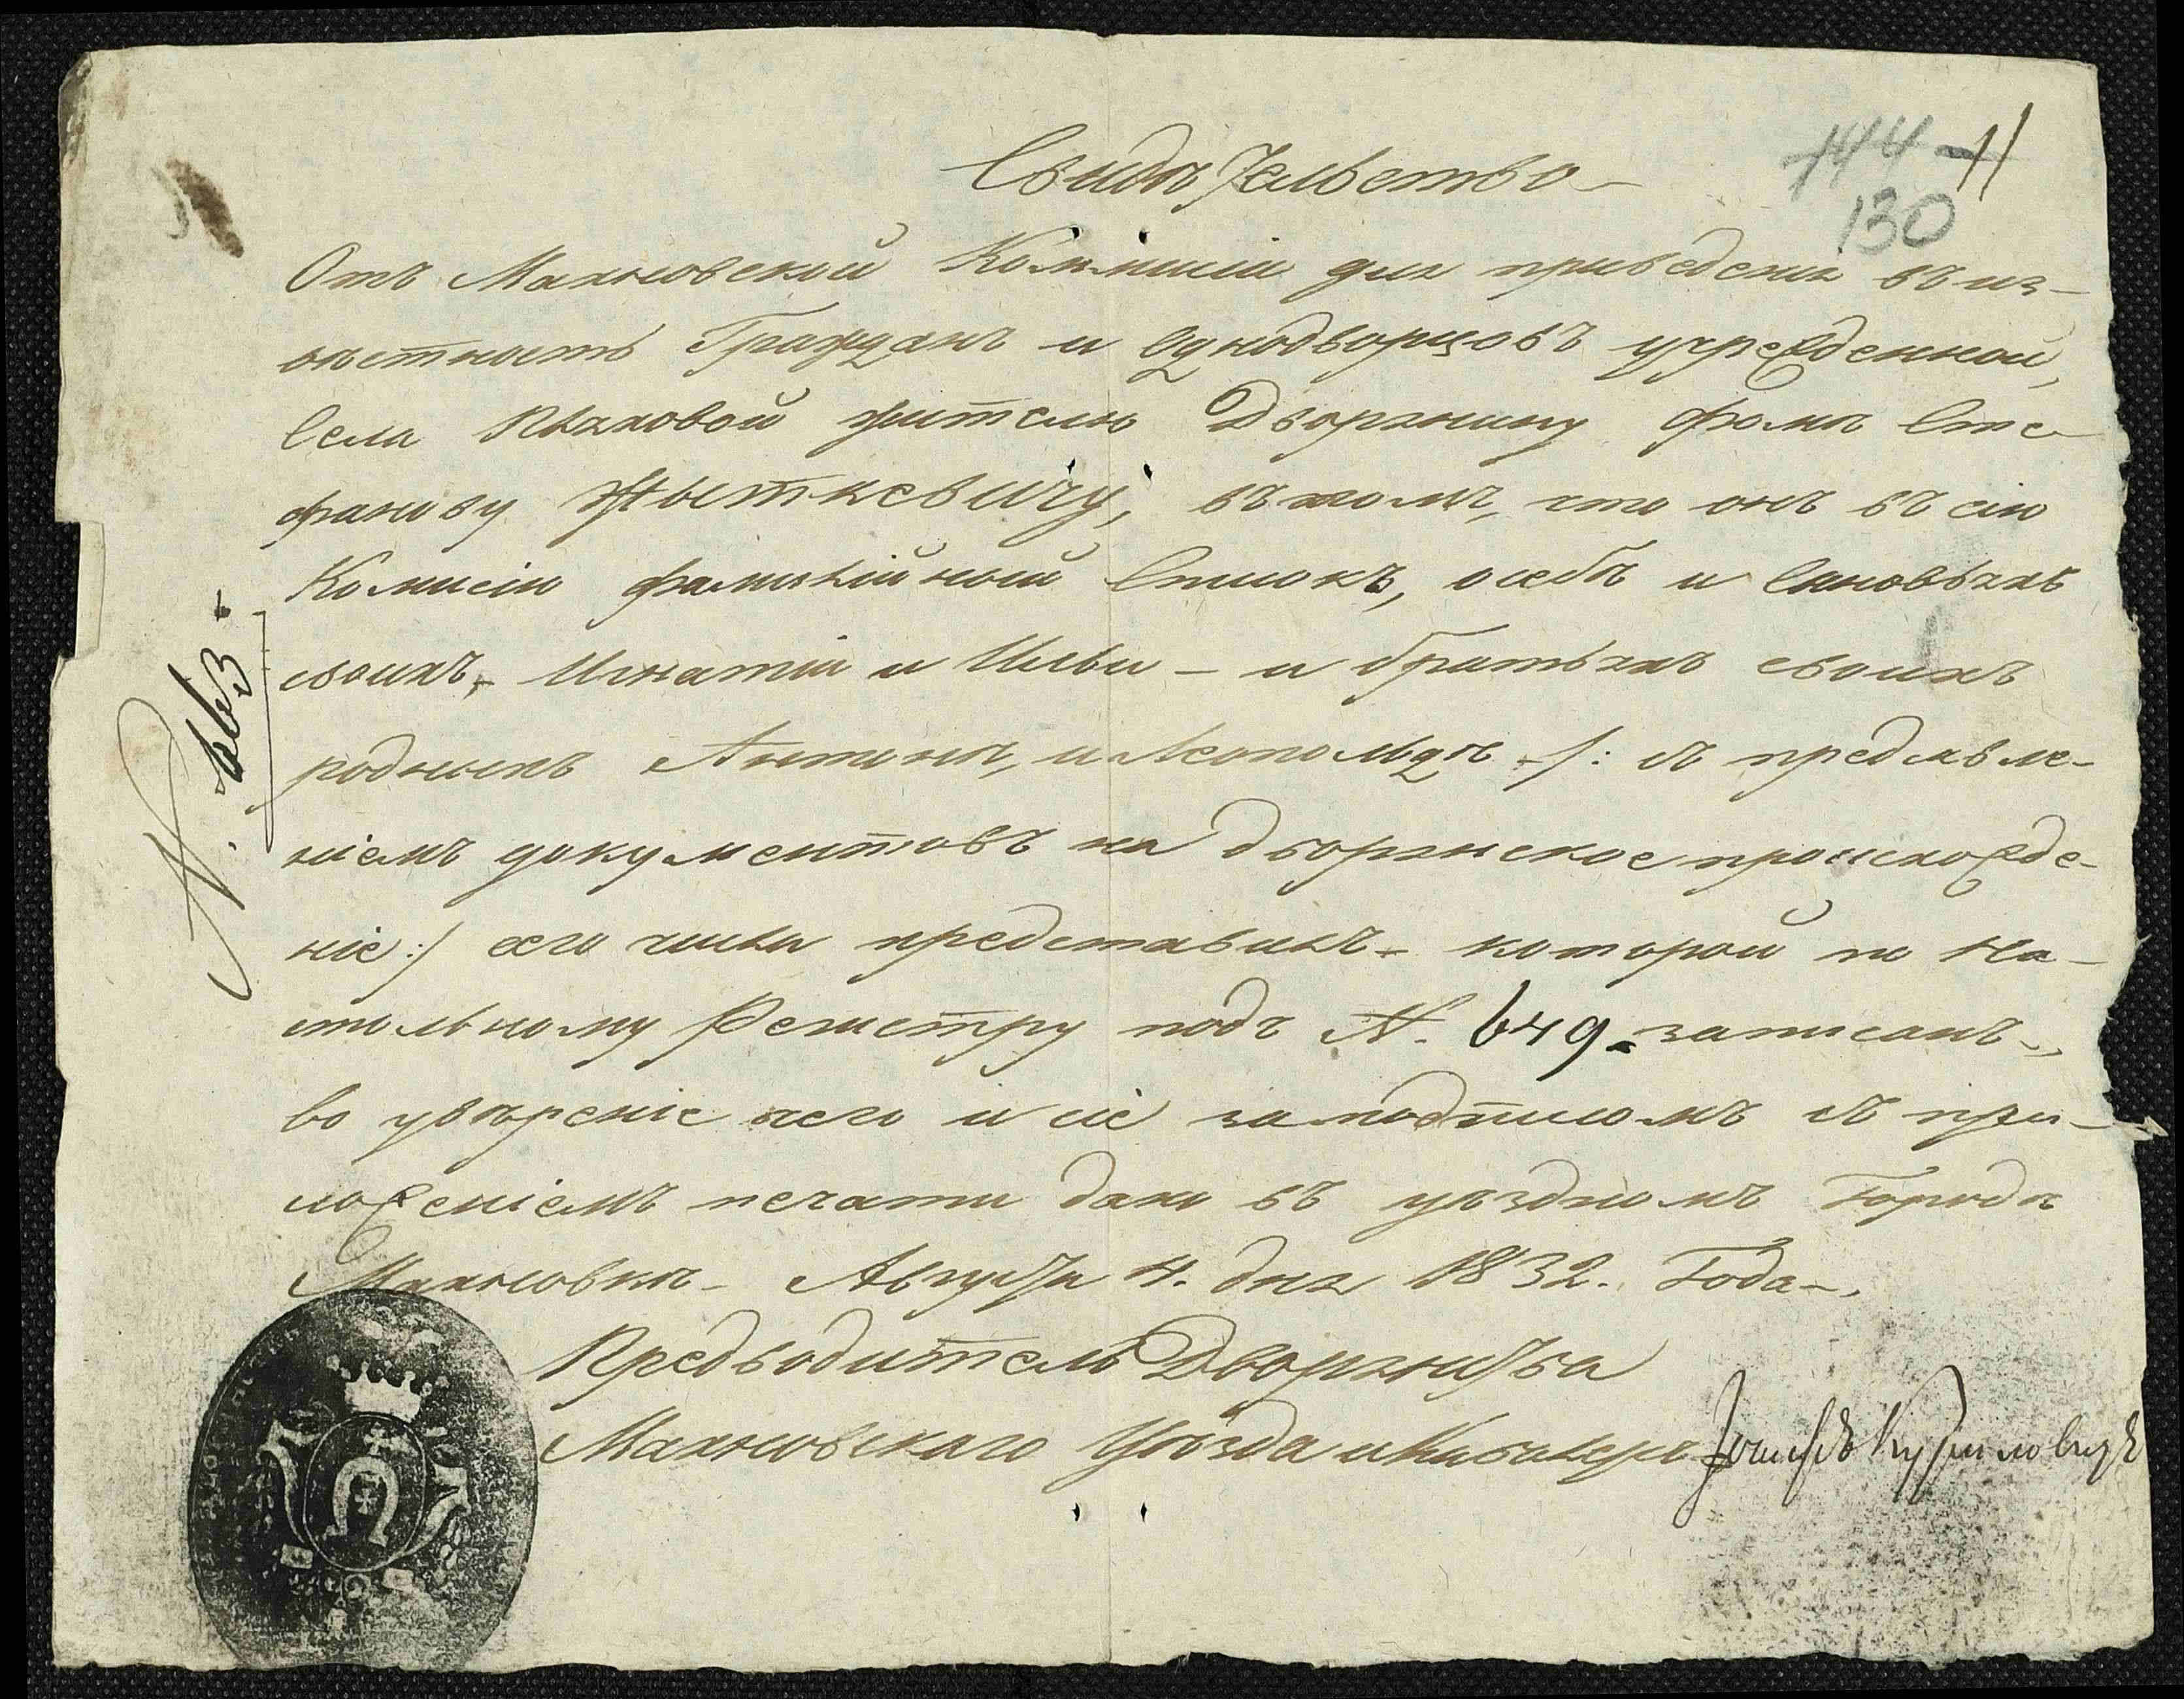 144 11
130
Свидѣтельство
Отъ Махновской Коммисіи для приведенія въ из-
вѣстность Гражданъ и Однодворцовъ учрежденной,
Села Пляховой жителю Дворянину Фомѣ Сте-
фанову Жыткевичу, въ томъ, что онъ въ сію
Комисію фамилійной Списокъ, о себѣ и Сыновьяхъ
своихъ, Игнатіи и Ильи - и братьяхъ своихъ
родныхъ Антонѣ, и Леопольдѣ /: съ предъявле-
ніемъ документовъ на дворянское происхожде-
ніе :/ сего числа представилъ - которой по На-
стольному Регистру подъ N. 649 записанъ -,
во увѣреніе чего и сіе за подписомъ съ при-
ложеніемъ печати дано въ уѣздномъ Городѣ
Махновкѣ - Августа 4. дня 1832. Года -,
Предводитель Дворянства
Махновскаго Уѣзда и Кавалеръ Іосифъ
N. 663